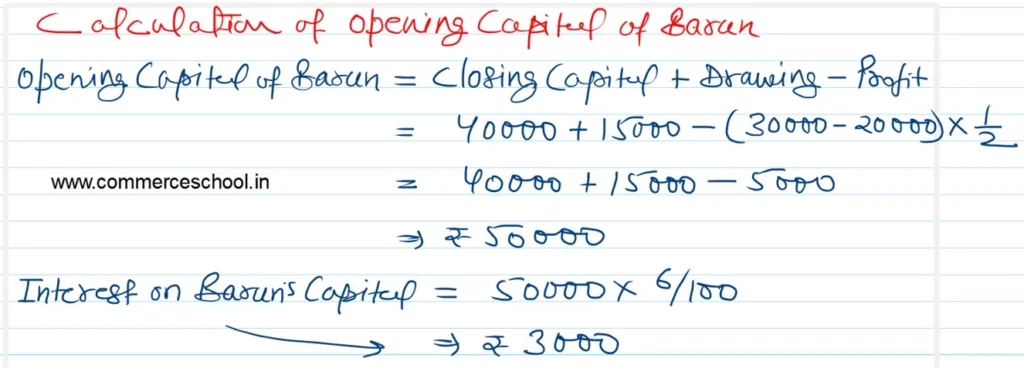 Calculation of Opening Capital of Barun
Opening Capital of Barun = Closing Capital + Drawing - Profit
= 40000 + 15000 - (30000 - 20000) × 1/2
www.commerceschool.in = 40000 + 15000 - 5000
⇒ ₹ 50000
Interest on Barun's Capital = 50000 × 6/100
⇒ ₹ 3000